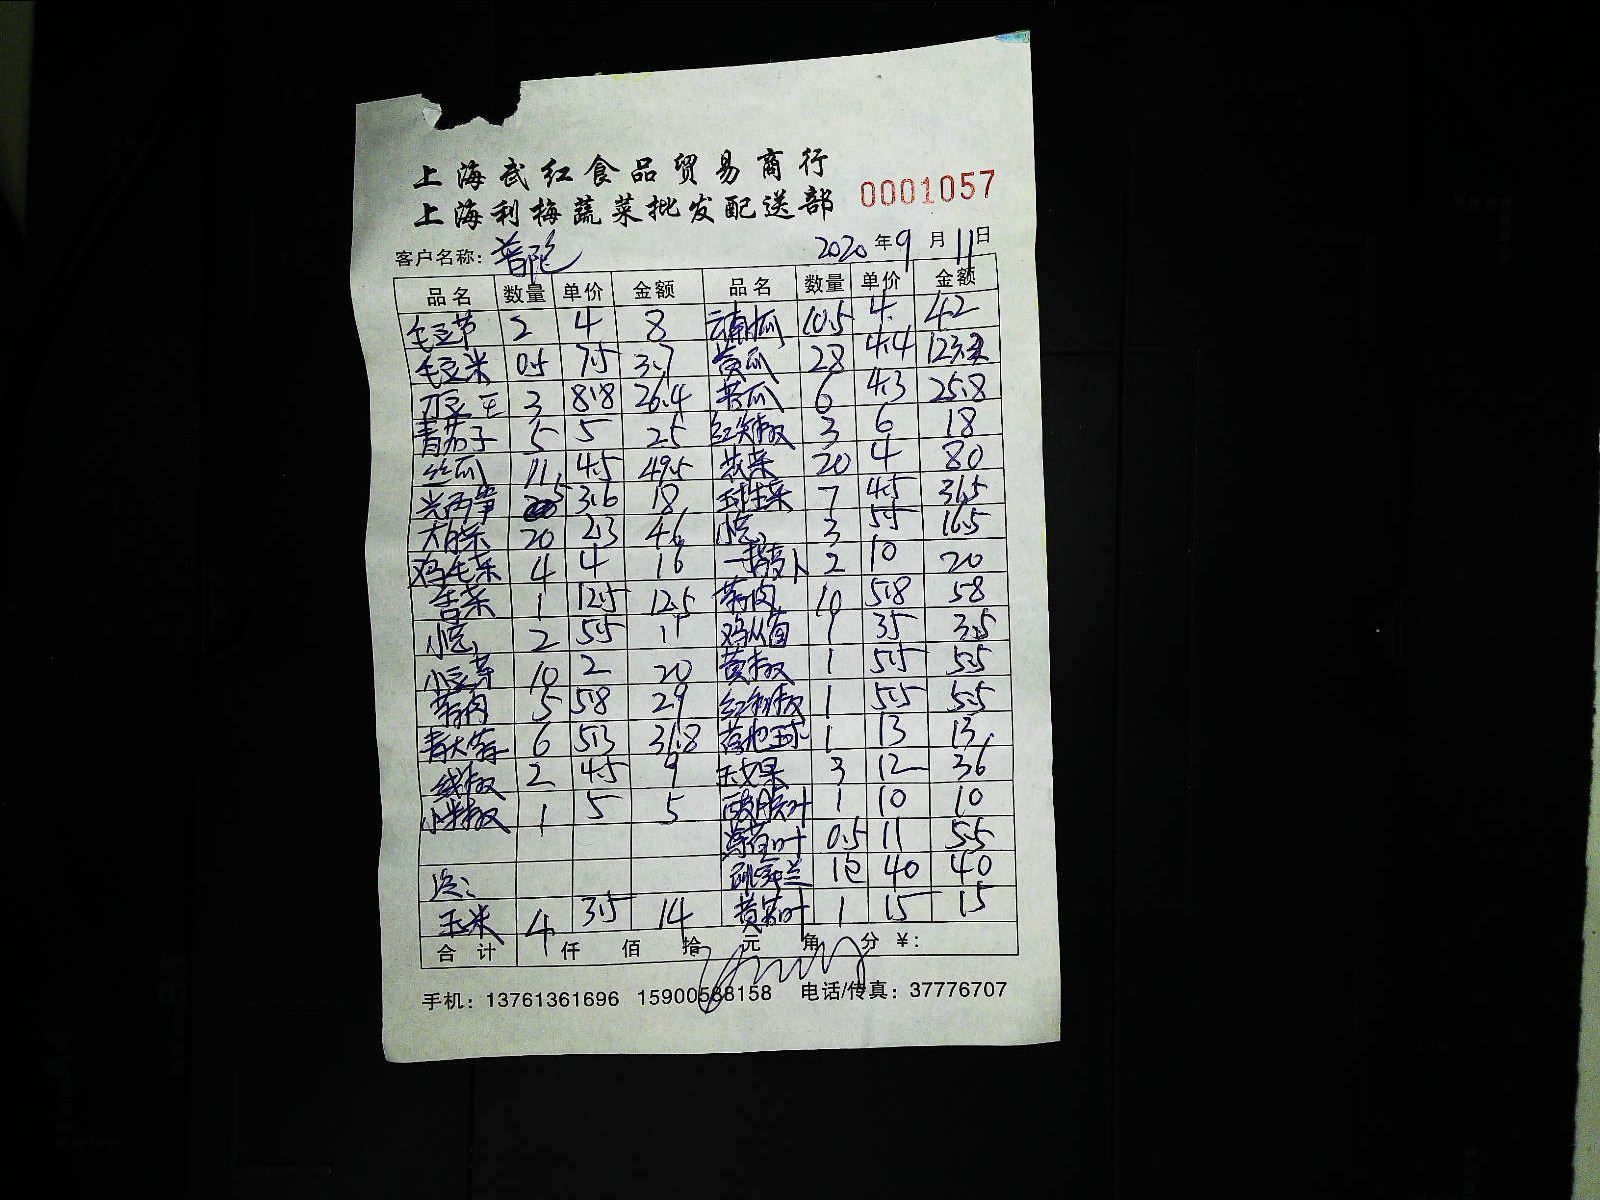 上海武红食品贸易商行
上海利梅蔬菜批发配送部 0001057
客户名称: 普陀 2020年9月11日
品名 数量 单价 金额 品名 数量 单价 金额
毛豆节 2 4 8 云南瓜 10.5 4. 42
毛豆米 0.5 7.5 3.7 黄瓜 28 4.4 123.2
刀豆王 3 8.8 26.4 苦瓜 6 4.3 25.8
青茄子 5 5 25 红尖椒 3 6 18
丝瓜 11 4.5 49.5 花菜 20 4 80
5 3.6 18 球生菜 7 4.5 31.5
大白菜 20 2.3 46 小葱 3 5.5 16.5
鸡毛菜 4 4 16 2 10 20
1 12.5 12.5 茭白肉 10 5.8 58
小葱 2 5.5 11 鸡从菌 1 35 35
小豆芽 10 2 20 黄椒 1 5.5 5.5
茭白肉 5 5.8 29 1 5.5 5.5
6 5.3 31.8 1 13 13
线椒 2 4.5 9 3 12 36
小米椒 1 5 5 1 10 10
叶 0.5 11 5.5
兰 1包 40 40
玉米 4 3.5 14 叶 1 15 15
合计 仟 佰 拾 元 角 分 ¥:
手机: 13761361696 15900588158 电话/传真: 37776707